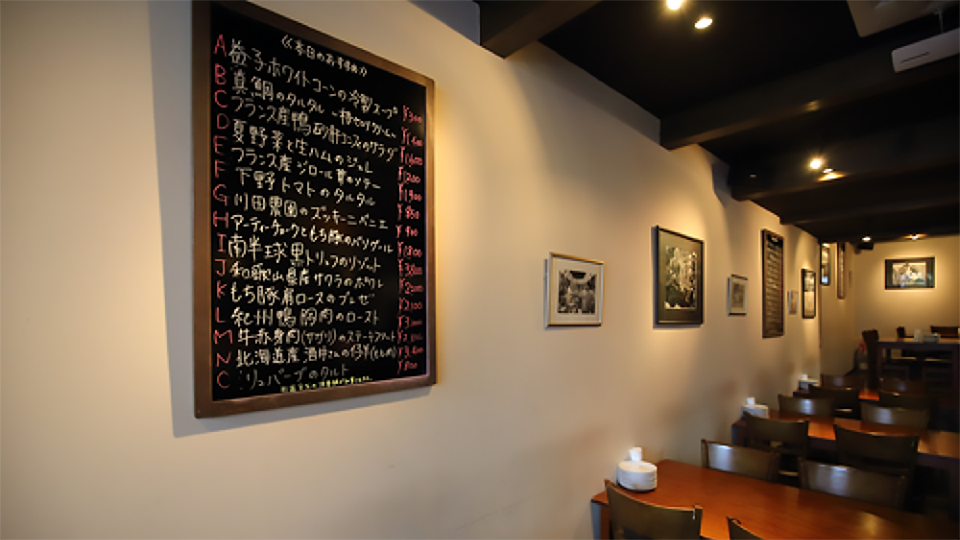 《本日のおすすめ》
A 益子ホワイトコーンの冷製スープ ¥300
B 真鯛のタルタル
C フランス産鴨砂肝コンフィのサラダ ¥1600
D 夏野菜と生ハムのジュレ ¥1200
E フランス産ジロール茸のソテー ¥1900
F 下野トマトのタルタル ¥850
G 川田農園のズッキーニベニエ ¥900
H アーティーチョークともち豚のバリグール ¥1800
I 南半球黒トリュフのリゾット ¥3800
J 和歌山県産サワラのポワレ ¥2000
K もち豚肩ロースのブレゼ ¥2100
L 紀州鴨胸肉のロースト
M 牛赤身肉(サガリ)のステークフリット
N 北海道産酒井さんの仔羊
C リュバーブのタルト ¥800